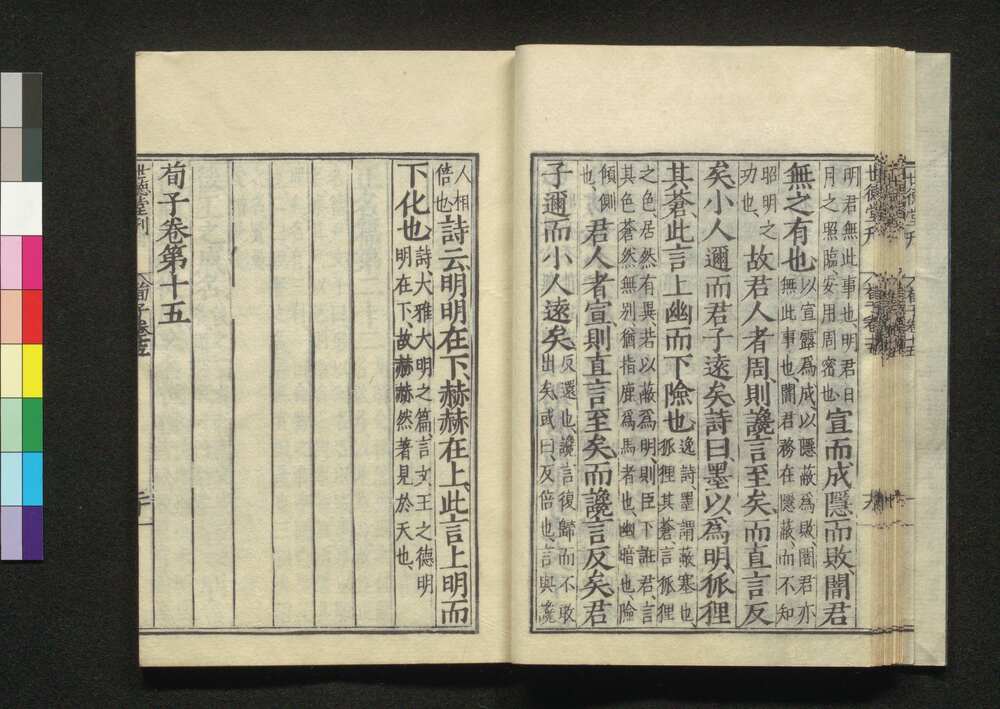 世德堂刊
荀子卷十五
明君無此事也、明君日
月之照臨、安用周密也、
宣而成隱而敗闇君
無之有也
以宣露爲成、以隱蔽爲敗、闇君亦
無此事也、闇君務在隱蔽、而不知
昭明之
功也、
故君人者周、則讒言至矣、而直言反
矣、小人邇而君子遠矣、詩曰墨以爲明、狐狸
其蒼、此言上幽而下險也
逸詩、墨謂蔽塞也、
狐狸其蒼、言狐狸
之色、居然有異、若以蔽爲明、則臣下誑君、言
其色蒼然無別、猶指鹿爲馬者也、幽、暗也、險、
傾側
也、
君人者宣、則直言至矣、而讒言反矣、君
子邇而小人遠矣
反、還也、讒言復歸而不敢
出矣、或曰、反、倍也、言與讒
人相
倍也
詩云明明在下、赫赫在上、此言上明而
下化也
詩、大雅大明之篇、言文王之德、明
明在下、故赫赫然著見於天也、
荀子卷第十五
世德堂刊
荀子卷十五